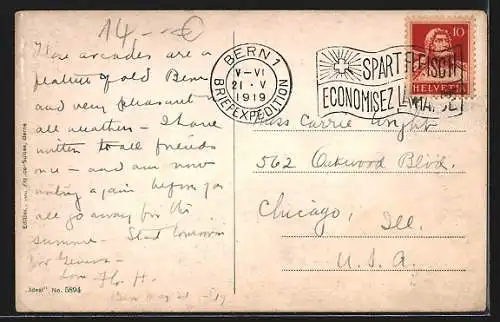 14.-- €
These arcades are a
feature of old Bern
and very pleasant
all weathers - I have
written to all friends
once - and am now
writing again before you
all go away for the
summer. Start tomorrow
for Geneva -
Love Flo. H.
Bern May 21 - 1919
BERN 1
V-VI
21. V
1919
BRIEFEXPEDITION
SPART FLEISCH
ECONOMISEZ LA VIANDE!
10
HELVETIA
Miss Carrie Wright
562 Oakwood Blvd.
Chicago, Ill.
U.S.A.
"Ideal", No. 5894